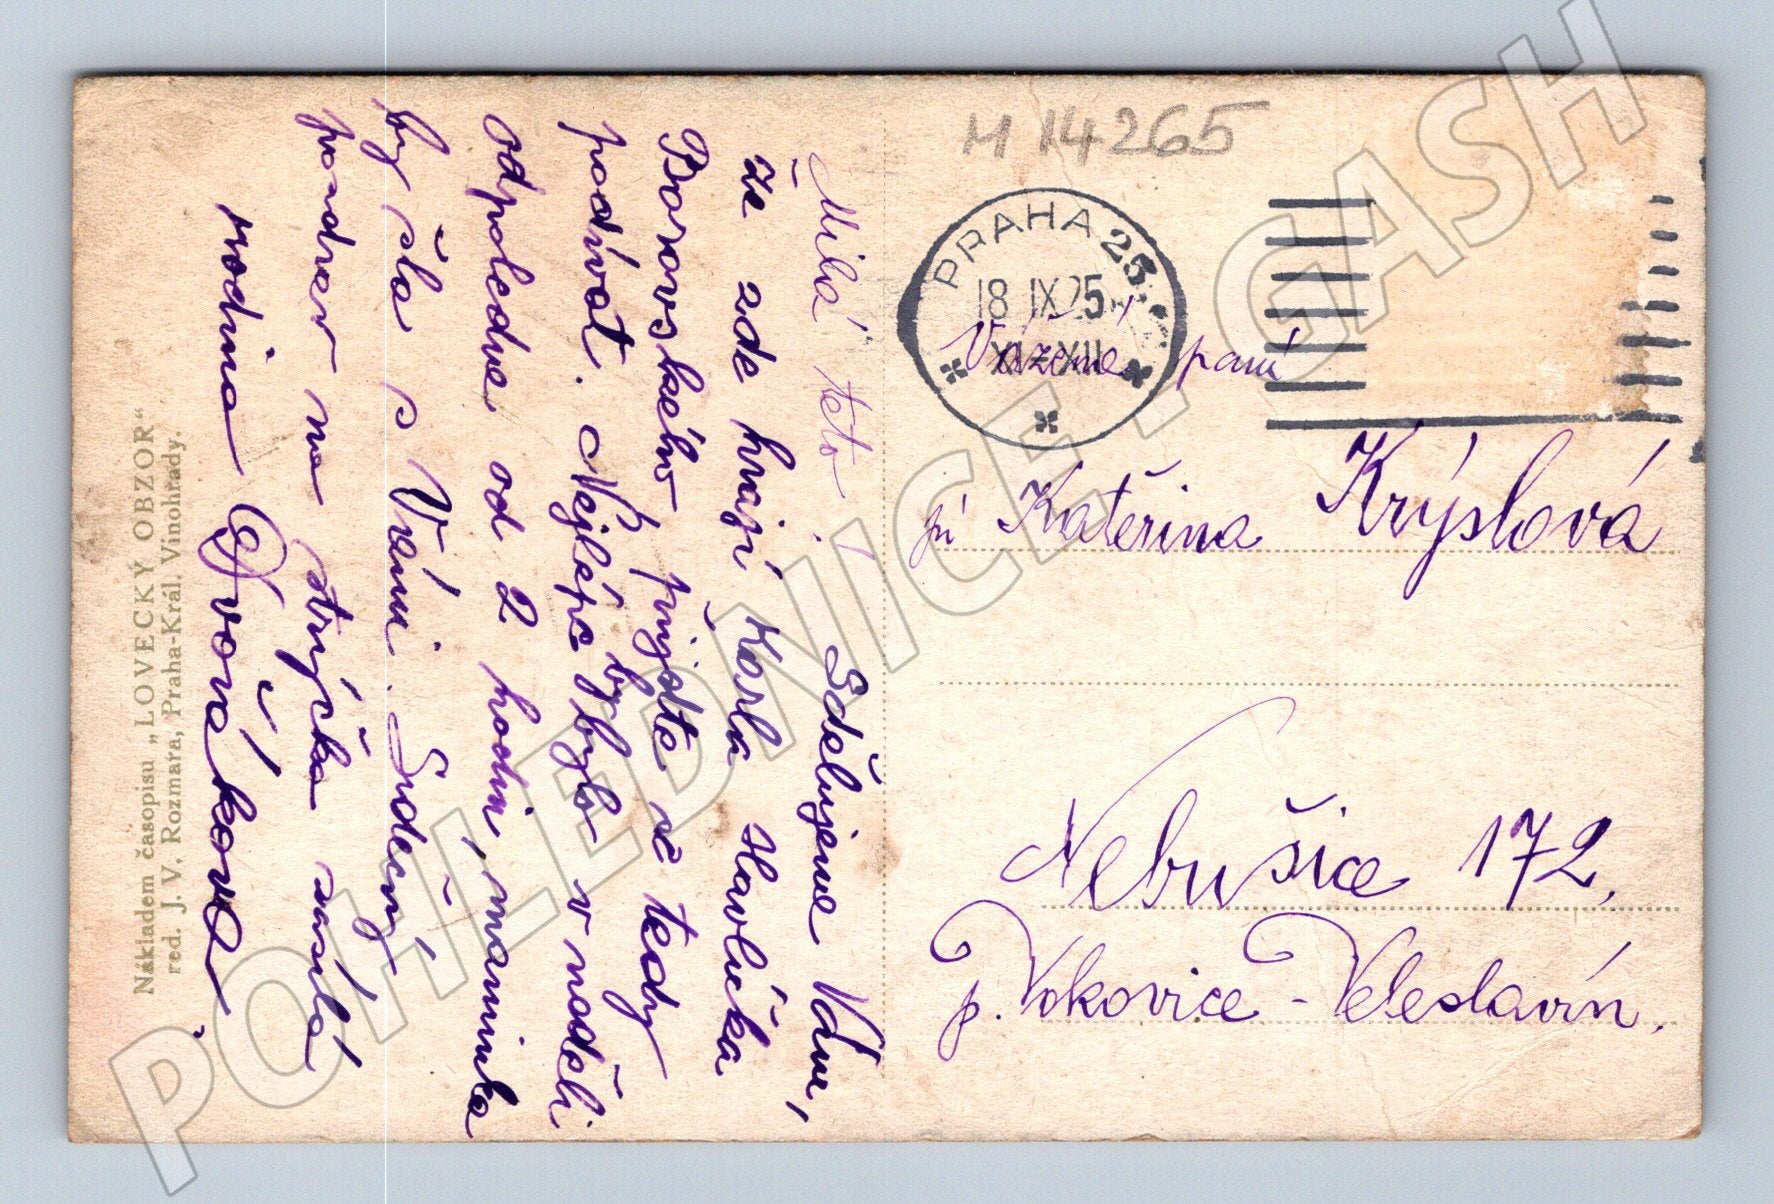 Milá teto! Sdělujeme Vám,
že zde hrají Karla Havlíčka
Borovského přijďte se tedy
podívat. Nejlépe by bylo v neděli
odpoledne od 2 hodin, maminka
by šla s Vámi. Srdečný
pozdrav na strýčka zasílá
rodina Dvořákova
Nákladem časopisu „LOVECKÝ OBZOR“
red. J. V. Rozmara, Praha-Král. Vinohrady.
M 14265
PRAHA 25
18 IX 25
XI-XII
Vážená paní
pí Kateřina Krýslová
Nebušice 172.
p. Vokovice - Veleslavín.
POHLEDNICE - GASH